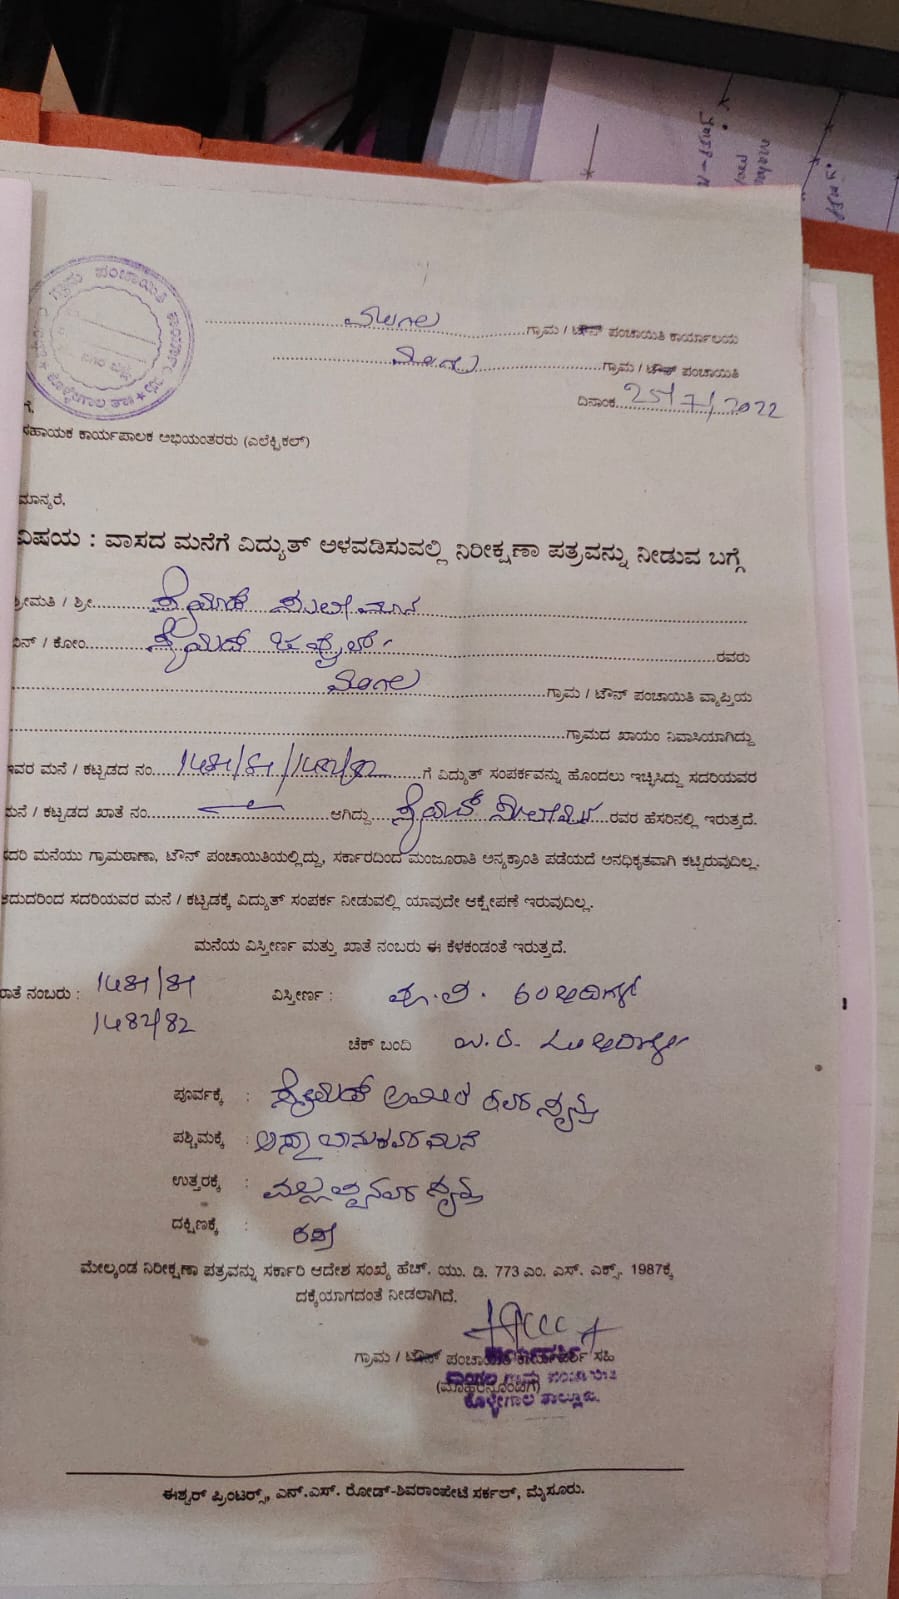 ಗ್ರಾಮ ಪಂಚಾಯಿತಿ ಕೊಳ್ಳೇಗಾಲ ತಾ||
ಗ್ರಾಮ / ಟೌನ್ ಪಂಚಾಯಿತಿ ಕಾರ್ಯಾಲಯ
ಗ್ರಾಮ / ಟೌನ್ ಪಂಚಾಯಿತಿ
ದಿನಾಂಕ 25/7/2022
ಗೆ,
ಸಹಾಯಕ ಕಾರ್ಯಪಾಲಕ ಅಭಿಯಂತರರು (ಎಲೆಕ್ಟ್ರಿಕಲ್)
ಮಾನ್ಯರೆ,
ವಿಷಯ : ವಾಸದ ಮನೆಗೆ ವಿದ್ಯುತ್ ಅಳವಡಿಸುವಲ್ಲಿ ನಿರೀಕ್ಷಣಾ ಪತ್ರವನ್ನು ನೀಡುವ ಬಗ್ಗೆ
ಶ್ರೀಮತಿ / ಶ್ರೀ ಸೈಯದ್
ಬಿನ್ / ಕೋಂ ಸೈಯದ್ ರವರು
ಗ್ರಾಮ / ಟೌನ್ ಪಂಚಾಯಿತಿ ವ್ಯಾಪ್ತಿಯ
ಗ್ರಾಮದ ಖಾಯಂ ನಿವಾಸಿಯಾಗಿದ್ದು
ಇವರ ಮನೆ / ಕಟ್ಟಡದ ನಂ. 1481/81/1482/82 ಗೆ ವಿದ್ಯುತ್ ಸಂಪರ್ಕವನ್ನು ಹೊಂದಲು ಇಚ್ಛಿಸಿದ್ದು ಸದರಿಯವರ
ಮನೆ / ಕಟ್ಟಡದ ಖಾತೆ ನಂ. ಆಗಿದ್ದು ಸೈಯದ್ ರವರ ಹೆಸರಿನಲ್ಲಿ ಇರುತ್ತದೆ.
ಸದರಿ ಮನೆಯು ಗ್ರಾಮಠಾಣಾ, ಟೌನ್ ಪಂಚಾಯಿತಿಯಲ್ಲಿದ್ದು, ಸರ್ಕಾರದಿಂದ ಮಂಜೂರಾತಿ ಅನ್ಯಕ್ರಾಂತಿ ಪಡೆಯದೆ ಅನಧಿಕೃತವಾಗಿ ಕಟ್ಟಿರುವುದಿಲ್ಲ.
ಆದುದರಿಂದ ಸದರಿಯವರ ಮನೆ / ಕಟ್ಟಡಕ್ಕೆ ವಿದ್ಯುತ್ ಸಂಪರ್ಕ ನೀಡುವಲ್ಲಿ ಯಾವುದೇ ಆಕ್ಷೇಪಣೆ ಇರುವುದಿಲ್ಲ.
ಮನೆಯ ವಿಸ್ತೀರ್ಣ ಮತ್ತು ಖಾತೆ ನಂಬರು ಈ ಕೆಳಕಂಡಂತೆ ಇರುತ್ತದೆ.
ಖಾತೆ ನಂಬರು : 1481/81 ವಿಸ್ತೀರ್ಣ : ಪೂ.ಪ. 60 ಅಡಿಗಳು
1482/82 ಚೆಕ್ ಬಂದಿ ಉ.ದ. ಅಡಿಗಳು
ಪೂರ್ವಕ್ಕೆ : ಸೈಯದ್ ಅಮೀರ ರವರ ಸ್ವತ್ತು
ಪಶ್ಚಿಮಕ್ಕೆ : ಮನೆ
ಉತ್ತರಕ್ಕೆ : ಸ್ವತ್ತು
ದಕ್ಷಿಣಕ್ಕೆ : ರಸ್ತೆ
ಮೇಲ್ಕಂಡ ನಿರೀಕ್ಷಣಾ ಪತ್ರವನ್ನು ಸರ್ಕಾರಿ ಆದೇಶ ಸಂಖ್ಯೆ ಹೆಚ್. ಯು. ಡಿ. 773 ಎಂ. ಎಸ್. ಎಕ್ಸ್. 1987ಕ್ಕೆ
ದಕ್ಕೆಯಾಗದಂತೆ ನೀಡಲಾಗಿದೆ.
ಗ್ರಾಮ / ಟೌನ್ ಪಂಚಾಯಿತಿ ಕಾರ್ಯದರ್ಶಿ ಸಹಿ
(ಮೊಹರಿನೊಂದಿಗೆ)
ಗ್ರಾಮ ಪಂಚಾಯಿತಿ
ಕೊಳ್ಳೇಗಾಲ ತಾಲ್ಲೂಕು.
ಈಶ್ವರ್ ಪ್ರಿಂಟರ್ಸ್, ಎನ್.ಎಸ್. ರೋಡ್-ಶಿವರಾಂಪೇಟೆ ಸರ್ಕಲ್, ಮೈಸೂರು.